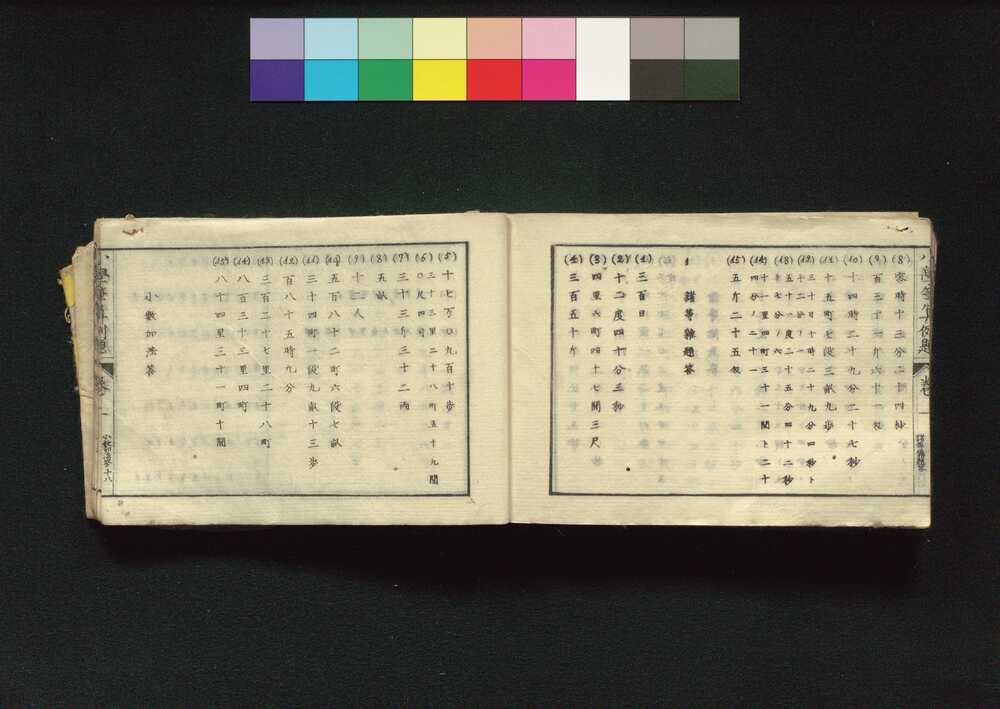 (8) 零時十三分二十四秒
(9) 百三十一斤六十一匁
(10) 十四時二十九分二十七秒
(11) 十五町七段三畝九歩
(12) 三十日十時二十九分四秒ト
(13) 五十一度二十五分四十二秒
(14) 十一里四町三十一間ト二十
四分ノ二十一
(15) 五斤二十五匁
諸等雜題答
(1) 三百日
(2) 十二度四十分三秒
(3) 四里六町四十七間三尺
(4) 三百五十斤
(5) 十七万〇九百十歩
(6) 三十三里二十八町五十九間
〇尺四寸
(7) 三十三斤三十二兩
(8) 五畝
(9) 十二人
(10) 五百八十二町六段七畝
(11) 三十四町一段九畝十三歩
(12) 百八十五時九分
(13) 三百二十七里二十八町
(14) 八百三十三里四町
(15) 八十四里三十一町十間
小數加法答